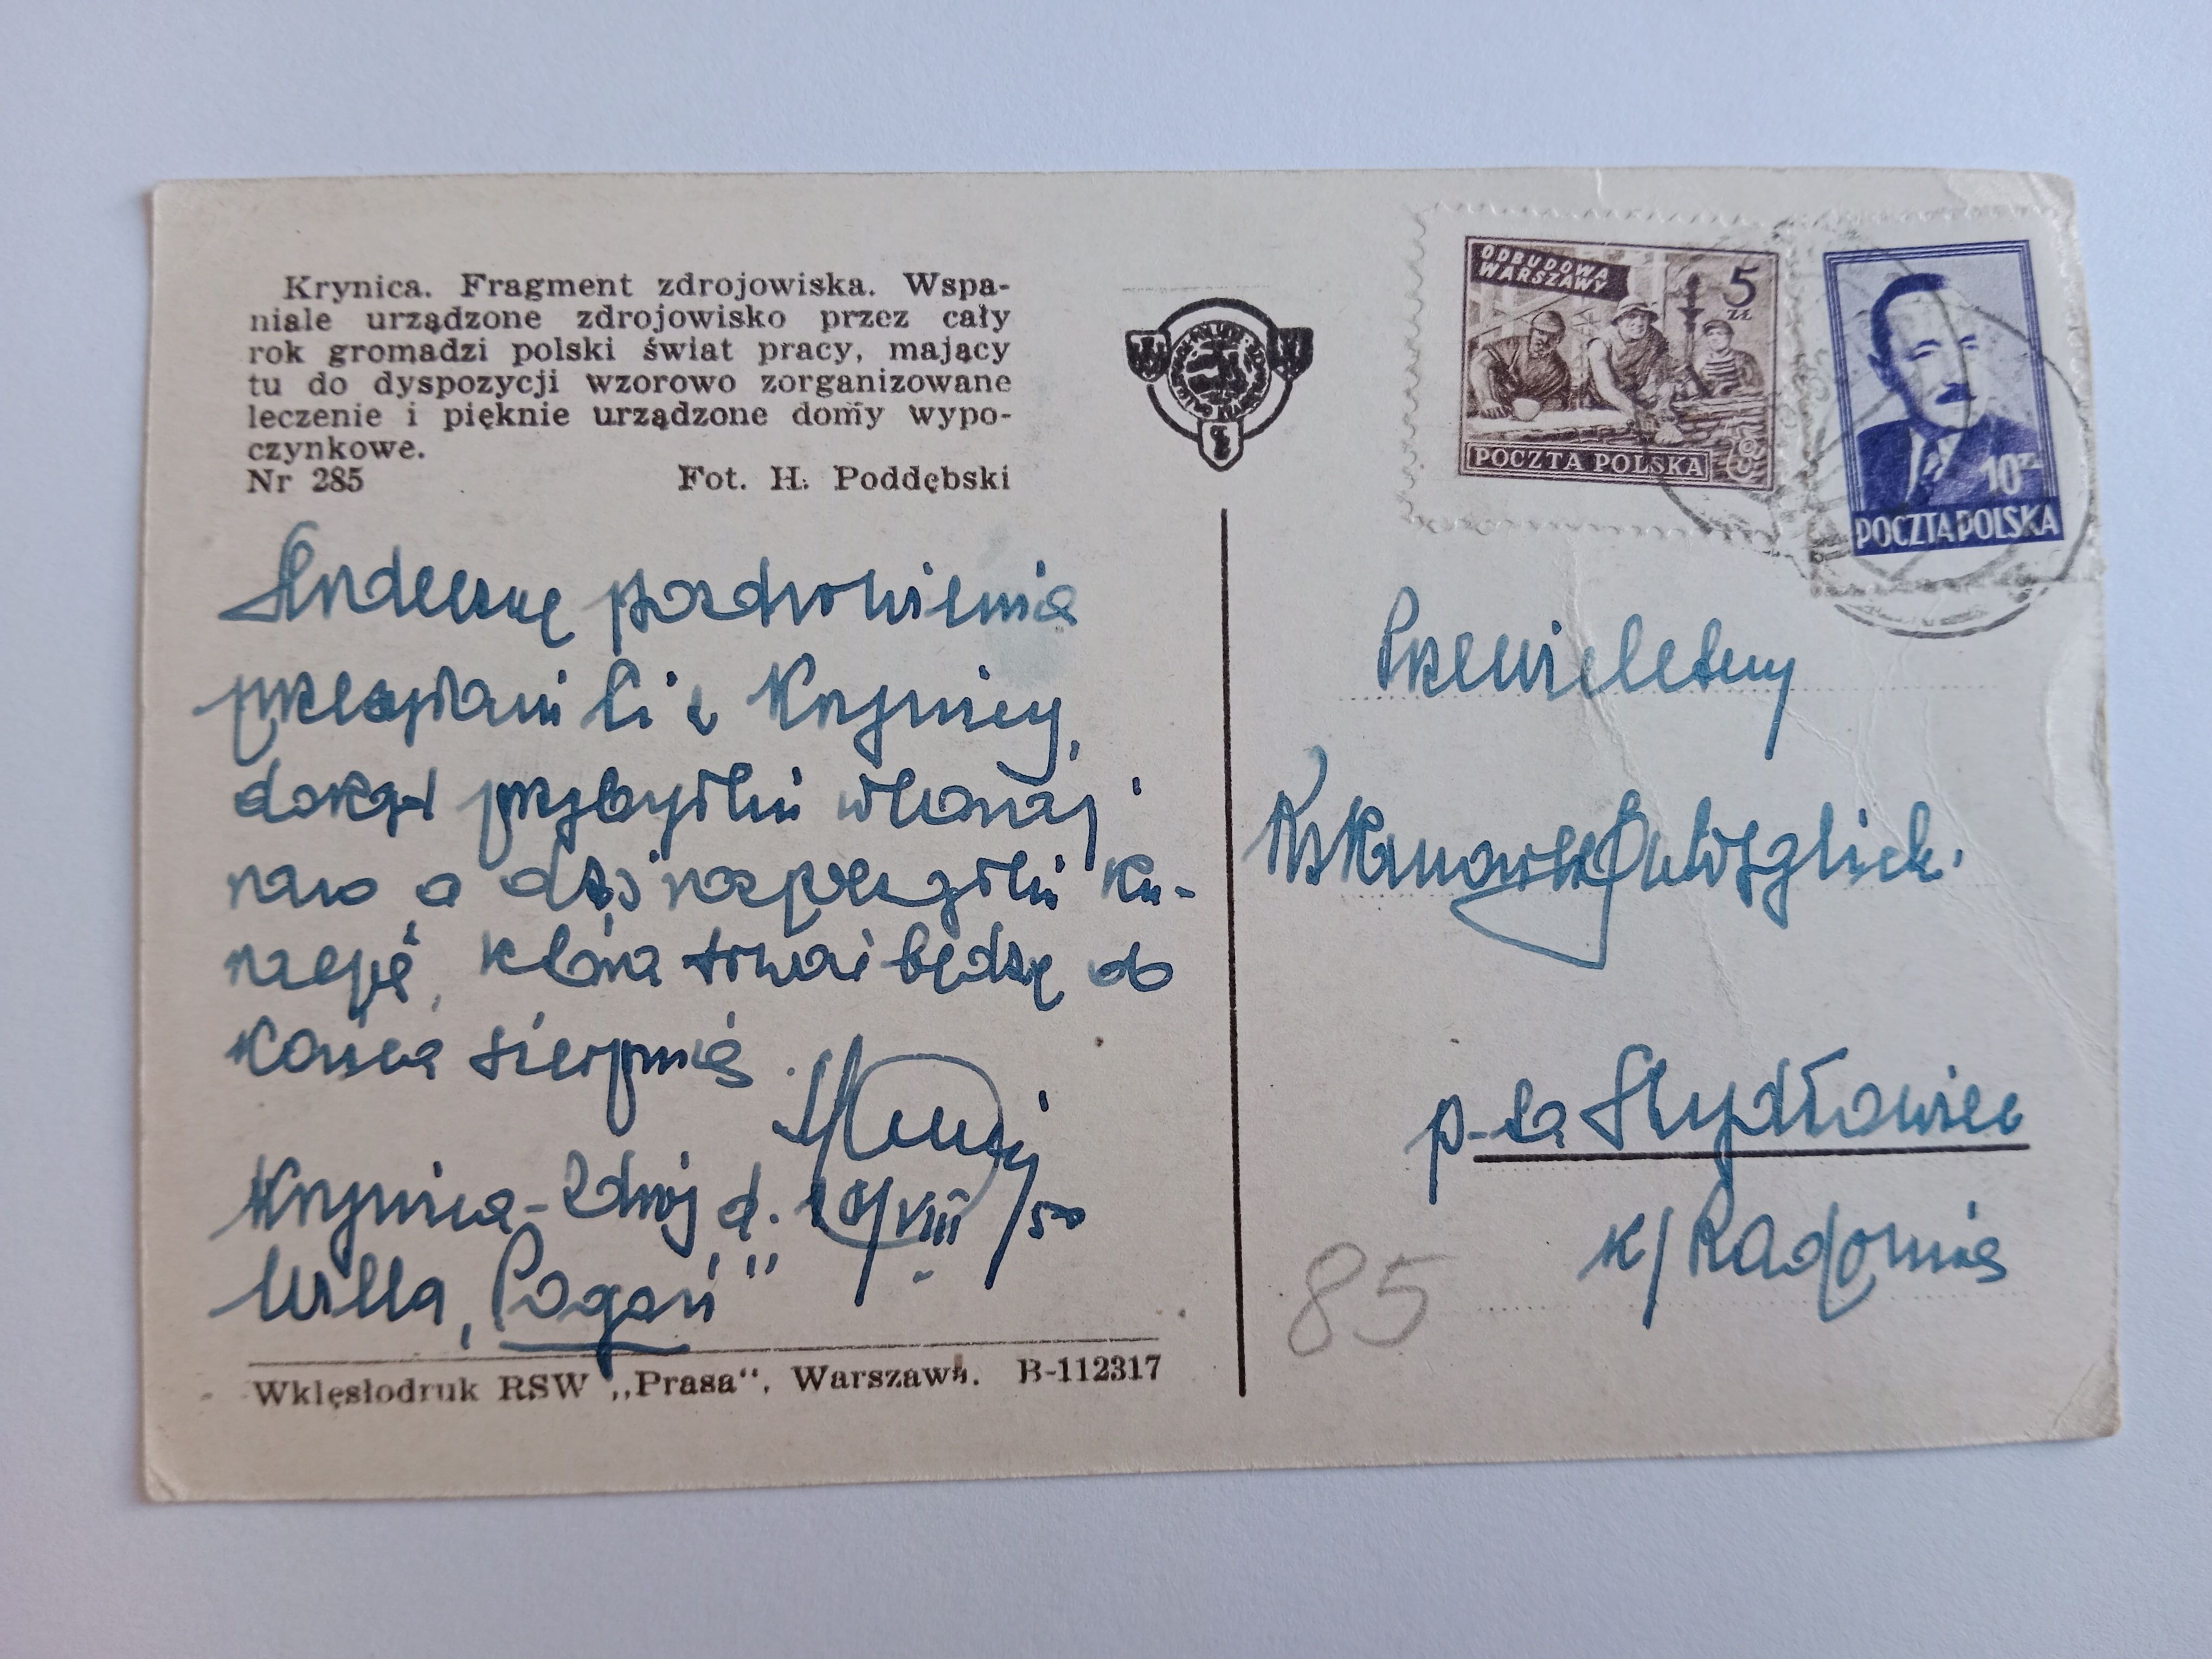 Krynica. Fragment zdrojowiska. Wspa-
niale urządzone zdrojowisko przez cały
rok gromadzi polski świat pracy, mający
tu do dyspozycji wzorowo zorganizowane
leczenie i pięknie urządzone domy wypo-
czynkowe.
Nr 285 Fot. H. Poddębski
Serdeczne pozdrowienia
przesyłam Ci z Krynicy,
dokąd przybyłem wczoraj
rano a dziś rozpocząłem ku-
rację, która trwać będzie do
końca sierpnia.
Krynica-Zdrój d. /VIII/50
Willa „Pogoń"
Wklęsłodruk RSW „Prasa", Warszawa. B-112317
ODBUDOWA
WARSZAWY
5
ZŁ
POCZTA POLSKA
10 zł
POCZTA POLSKA
Przewielebny
p-ta Szydłowiec
k/Radomia
85